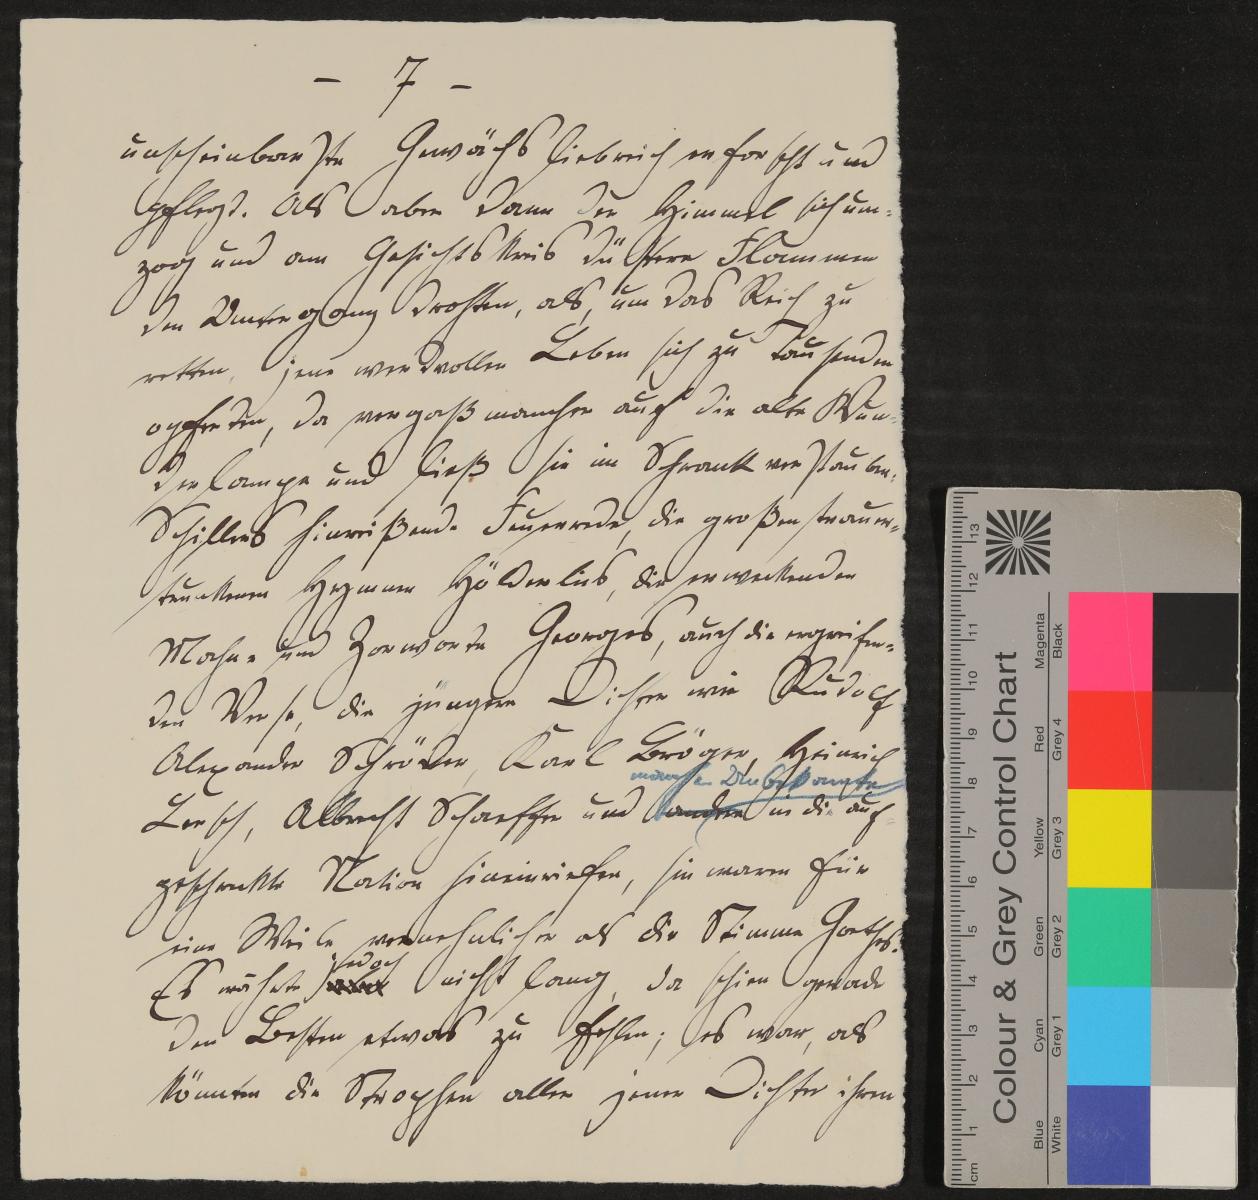 - 7 -
unscheinbarste Gewächs liebreich erforscht und
pflegt. Als aber dann der Himmel sich um-
zog und am Gesichtskreis düstere Flammen
den Untergang drohten, als, um das Reich zu
retten, jene wertvollen Leben sich zu Tausenden
opferten, da vergaß mancher auf die alte Wun-
derlampe und ließ sie im Schrank verstauben.
Schillers hinreißende Feuerrede, die großen trauer-
trunkenen Hymnen Hölderlins, die erweckenden
Mahn- und Zornworte Georges, auch die ergreifen-
den Verse, die jüngere Dichter wie Rudolf
Alexander Schröder, Karl Bröger, Heinrich
manche Unbekannte
Lersch, Albrecht Schaeffer und andere in die auf-
geschreckte Nation hineinriefen, sie waren für
eine Weile vernehmlicher als die Stimme Goethes.
jedoch
Es währte nicht lang, da schien gerade
den Besten etwas zu fehlen; es war, als
könnten die Strophen aller jener Dichter ihren
Colour & Grey Control Chart
Blue Cyan Green Yellow Red Magenta
White Grey 1 Grey 2 Grey 3 Grey 4 Black
cm 1 2 3 4 5 6 7 8 9 10 11 12 13